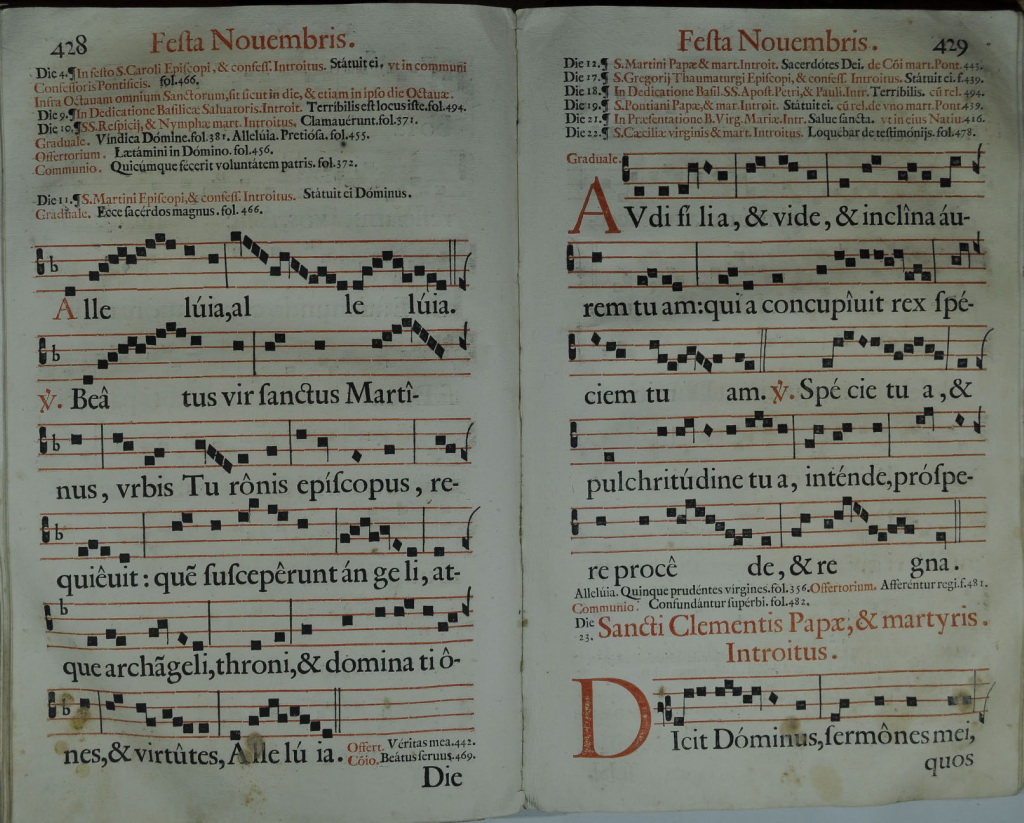 428 Feſta Nouembris.
Die 4.¶In feſto S.Caroli Epiſcopi, & confeſſ. Introitus. Státuit ei, vt in communi
Confeſſoris Pontificis. fol.466.
Infra Octauam omnium Sanctorum, fit ſicut in die, & etiam in ipſo die Octauæ.
Die 9.¶In Dedicatione Baſilicæ Saluatoris.Introit. Terribilis eſt locus iſte.fol.494.
Die 10.¶SS.Reſpicij, & Nymphæ mart. Introitus. Clamauérunt.fol.371.
Graduale. Víndica Dómine.fol.381. Allelúia. Pretióſa.fol.455.
Offertorium. Lætámini in Dómino.fol.456.
Communio. Quicúmque fécerit voluntátem patris.fol.372.
Die 11.¶S.Martini Epiſcopi,& confeſſ. Introitus. Státuit ei Dóminus.
Graduale. Ecce ſacérdos magnus.fol.466.
A lle lúia,al le lúia.
℣. Beâ tus vir ſanctus Martî-
nus, vrbis Tu rônis epíſcopus, re-
quiêuit: quẽ ſuſcepêrunt án ge li, at-
que archãgeli,throni,& domina ti ô-
nes,& virtûtes, A lle lú ia. Offert. Véritas mea.442.
Cõio. Beátus ſeruus.469.
Die
Feſta Nouembris. 429
Die 12.¶ S.Martini Papæ & mart.Introit. Sacerdótes Dei. de Cõi mart.Pont.443.
Die 17.¶ S.Gregorij Thaumaturgi Epiſcopi, & confeſſ. Introitus. Státuit ei.f.439.
Die 18.¶ In Dedicatione Baſil.SS.Apoſt.Petri,& Pauli.Intr.Terribilis. cũ rel.494.
Die 19.¶ S.Pontiani Papæ,& mar.Introit. Státuit ei. cũ rel.de vno mart.Pont.439.
Die 21.¶ In Præſentatione B.Virg.Mariæ.Intr.Salue ſancta. vt in eius Natiu.416.
Die 22.¶ S.Cæciliæ virginis & mart. Introitus. Loquébar de teſtimónijs.fol.478.
Graduale.
A Vdi fi lia, & vide, & inclîna áu-
rem tu am:qui a concupîuit rex ſpé-
ciem tu am. ℣. Spé cie tu a ,&
pulchritúdine tu a, inténde,próſpe-
re procê de,& re gna.
Allelúia. Quinque prudéntes vírgines.fol.356.Offertorium. Afferéntur regi.f.481.
Communio. Confundántur ſupérbi.fol.482.
Die 23. Sancti Clementis Papæ,& martyris.
Introitus.
D Icit Dóminus,ſermônes mei,
quos